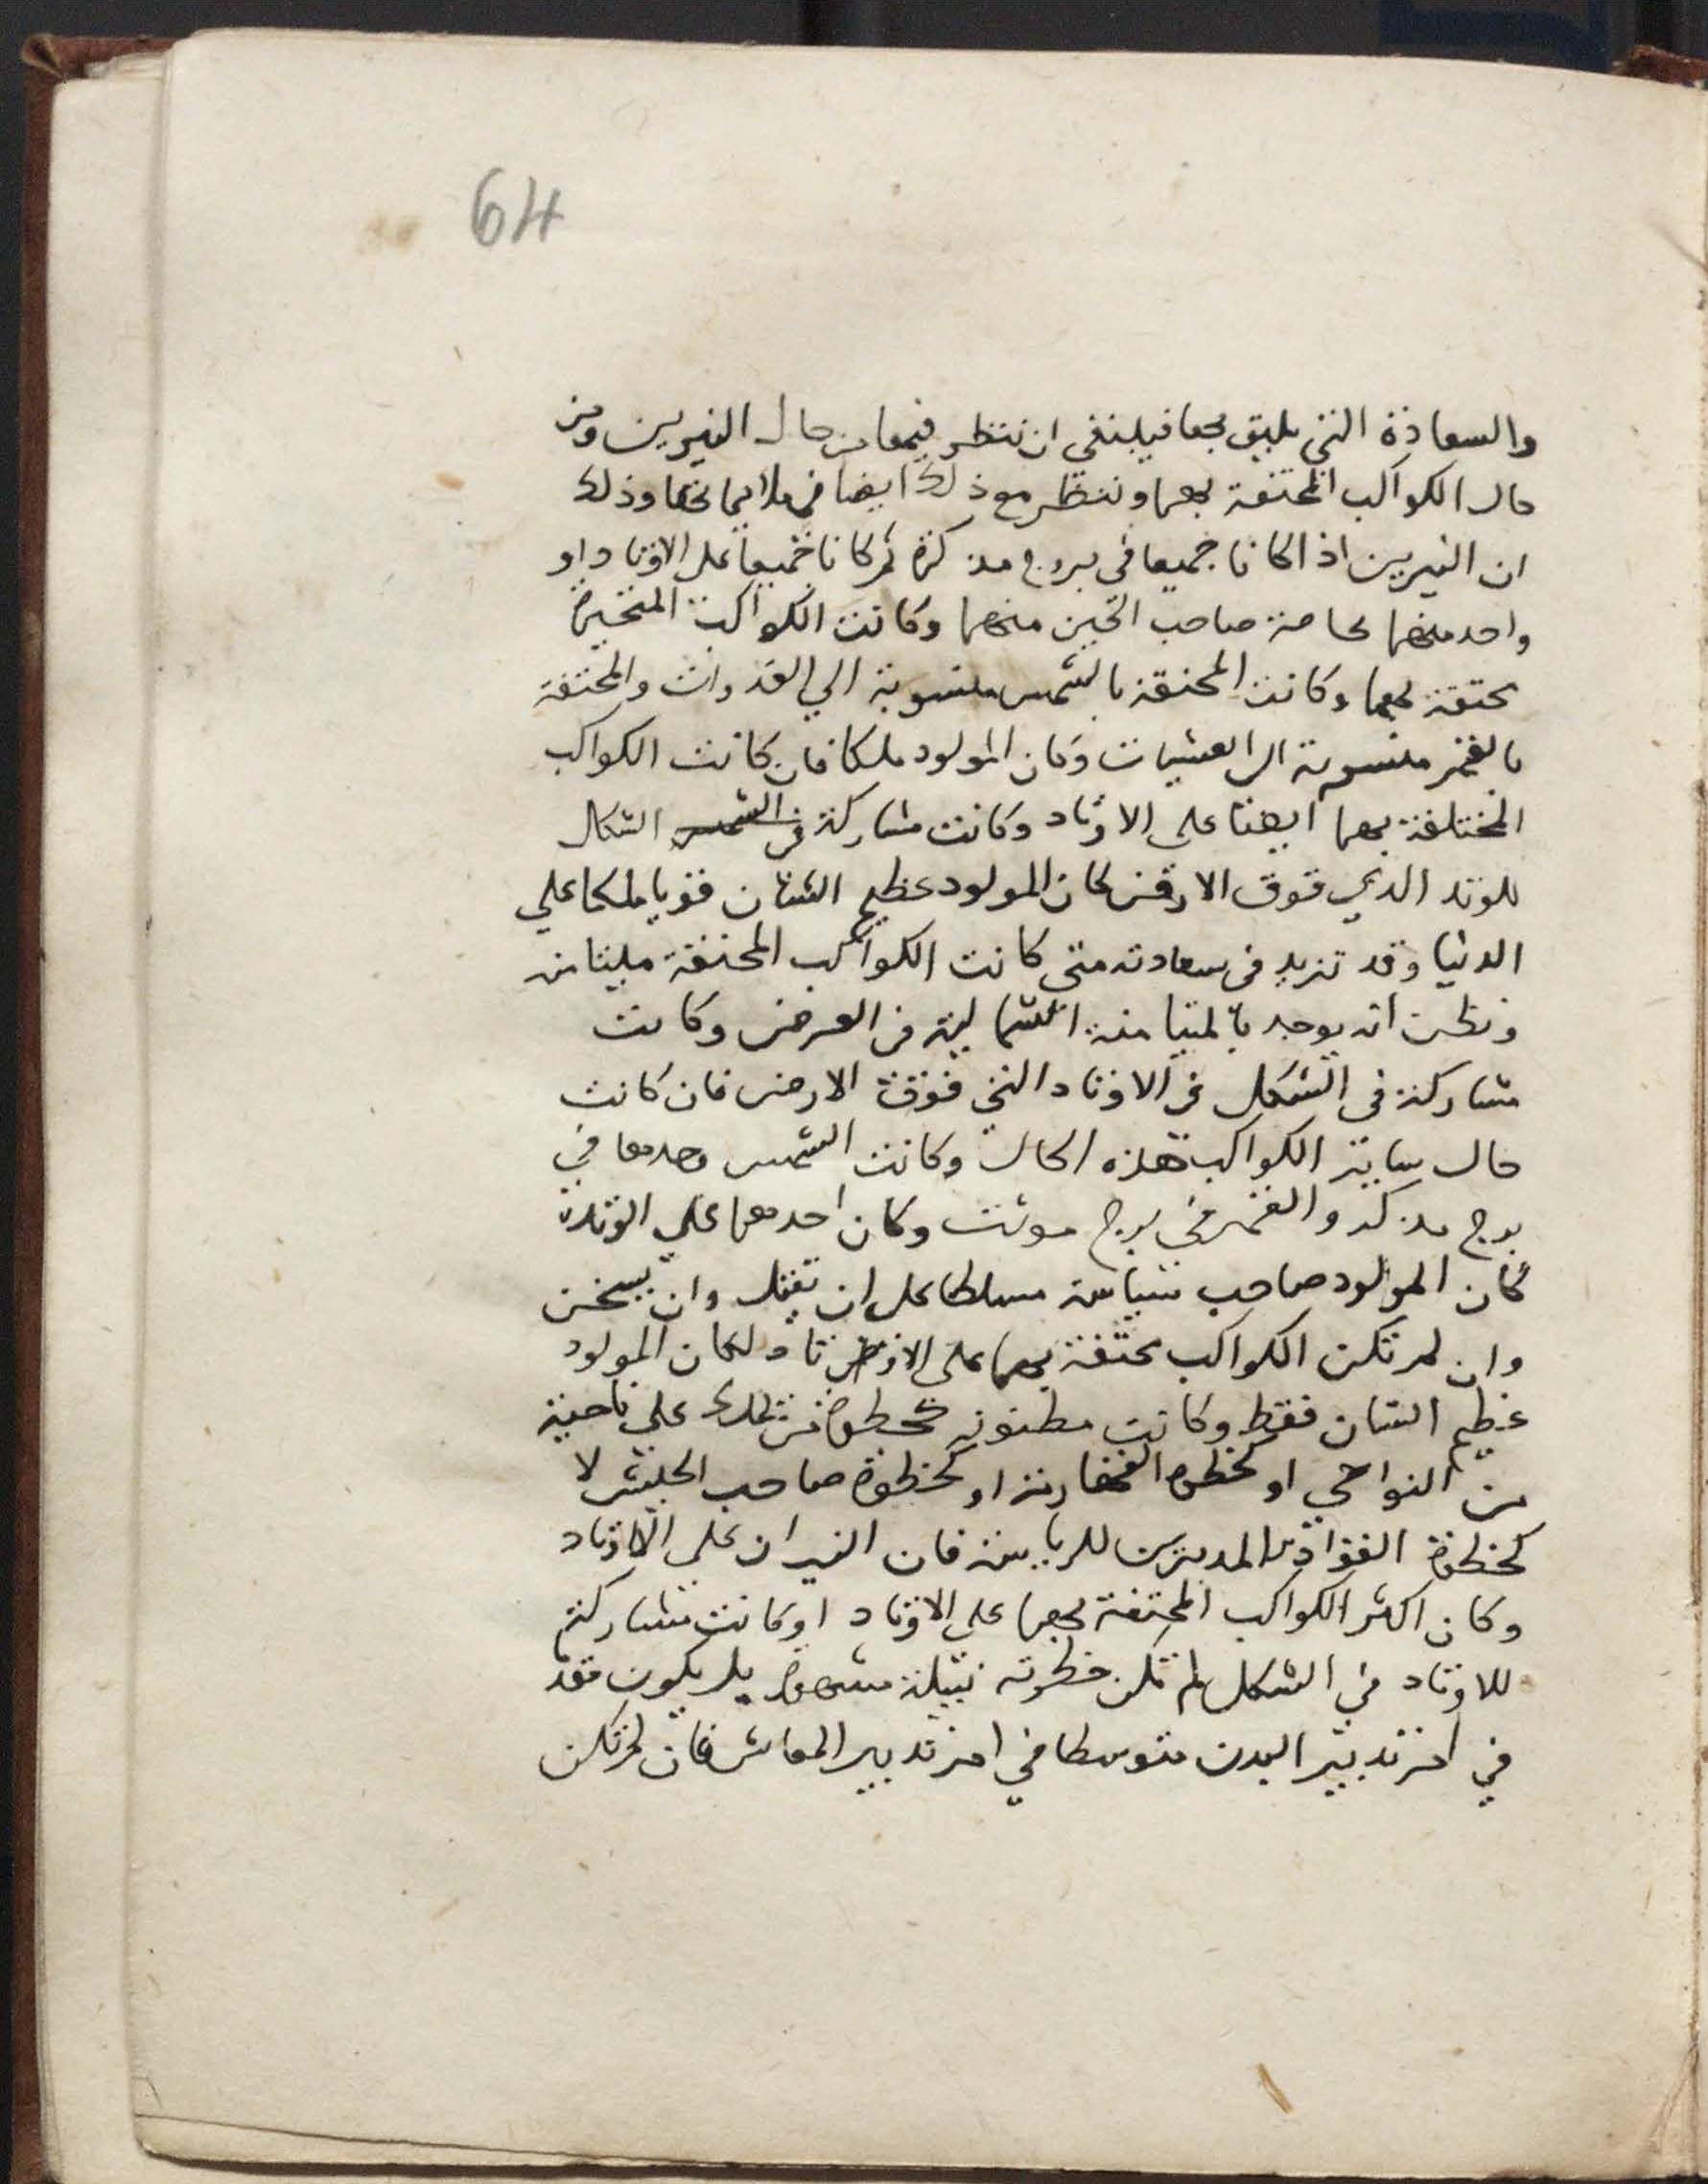 64
والسعاذة التي يليق بها فيلبنغي ان ننظر فيها من حال النيرين ومن
حال الكواكب المحتفة بهما وننظر مع ذلك ايضا في ملايماتها وذلك
ان النيرين اذا كانا جميعا في بروج مذكرة ثم كانا جميعا على الاوتاد او
واحد منهما بخاصة صاحب الحين منهما وكانت الكواكب المتحيرة
محتفة بهما وكانت المحتفة بالشمس منسوبة الي الغدوات والمحتفة
بالقمر منسوبة الى العشيات وكان المولود ملكا فان كانت الكواكب
المختلفة بهما ايضا على الاوتاد وكانت مشاركة في الشمس الشكال
للوتد الذي فوق الارض كان المولود عظيم الشان قويا ملكا علي
الدنيا وقد تزيد في سعادته متى كانت الكواكب المحتفة ميامنه
ونظن انه يوجد بالميامنة الشمالية في العرض وكانت
مشاركة في الشكل في الاوتاد التي فوق الارض فان كانت
حال سايتر الكواكب هذه الحال وكانت الشمس وحدها في
برج مذكر والقمر في برج مونث وكان احدهما علي الوتد
كان المولود صاحب سياسة مسلطا على ان يقتل وان يسجن
وان لم تكن الكواكب محتفة بهما على الاوتاد لكان المولود
عظيم الشان فقط وكانت على ناحية
من النواحي او كخطوة او كخطوة صاحب الجيش لا
كخطوة القواد المدبرين للرياسة فان النيران علي الاوتاد
وكان اكثر الكواكب المحتفة بهما على الاوتاد او كانت مشاركة
للاوتاد في الشكل لم تكن خطوته نبيلة مشهورة بل يكون متقد
في امر تدبير البدن متوسطا في امر تدبير المعاش فان لم تكن